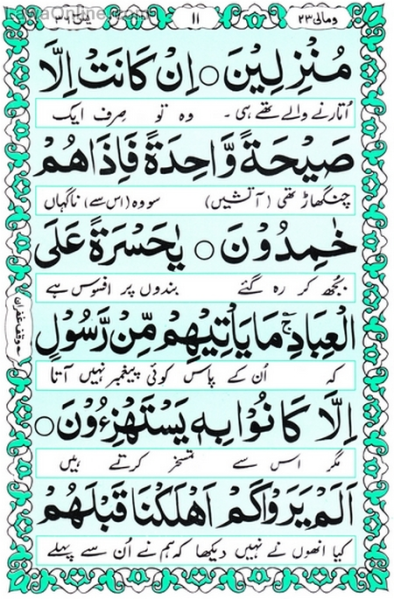 ومالی ۲۳ ۱۱ یٰسٓ ۳۶
مُنْزِلِیْنَ ○ اِنْ کَانَتْ اِلَّا
اُتارنے والے تھے ہی ۔ وہ تو صرف ایک
صَیْحَةً وَّاحِدَةً فَاِذَا هُمْ
چنگھاڑ تھی (آتشیں) سو وہ (اس سے) ناگہاں
خٰمِدُوْنَ ○ یٰحَسْرَةً عَلَی
بُجھ کر رہ گئے بندوں پر افسوس ہے
الْعِبَادِ ۚ مَا یَاْتِیْهِمْ مِّنْ رَّسُوْلٍ
کہ اُن کے پاس کوئی پیغمبر نہیں آتا
اِلَّا کَانُوْا بِهٖ یَسْتَهْزِءُوْنَ ○
مگر اس سے تمسخر کرتے ہیں
اَلَمْ یَرَوْا کَمْ اَهْلَکْنَا قَبْلَهُمْ
کیا انھوں نے نہیں دیکھا کہ ہم نے اُن سے پہلے
وقف غفران